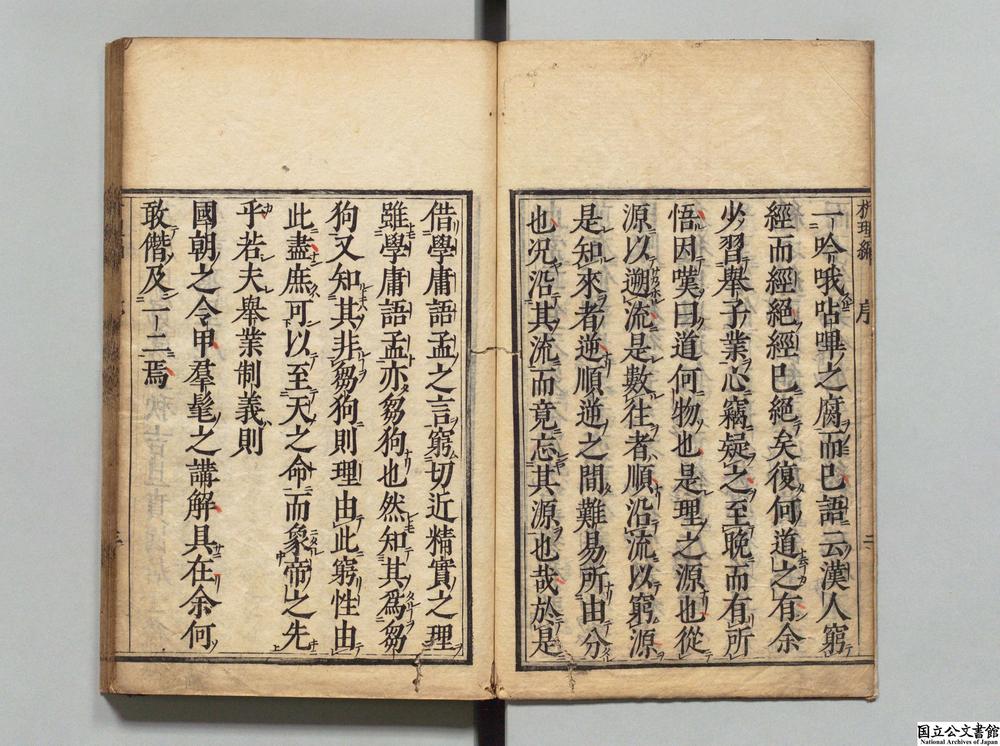 析理編 序 二
一吟哦呫嗶之腐而已語云漢人窮
經而經絕經已絕矣復何道之有余
少習舉子業心竊疑之至晚而有所
悟因嘆曰道何物也是理之源也從
源以遡流是數往者順沿流以窮源
是知來者逆順逆之間難易所由分
也況沿其流而竟忘其源也哉於是
借學庸語孟之言窮切近精實之理
雖學庸語孟亦芻狗也然知其為芻
狗又知其非芻狗則理由此窮性由
此盡庶可以至天之命而象帝之先
乎若夫舉業制義則
國朝之令甲羣髦之講解具在余何
敢僭及一二焉
国立公文書館
National Archives of Japan